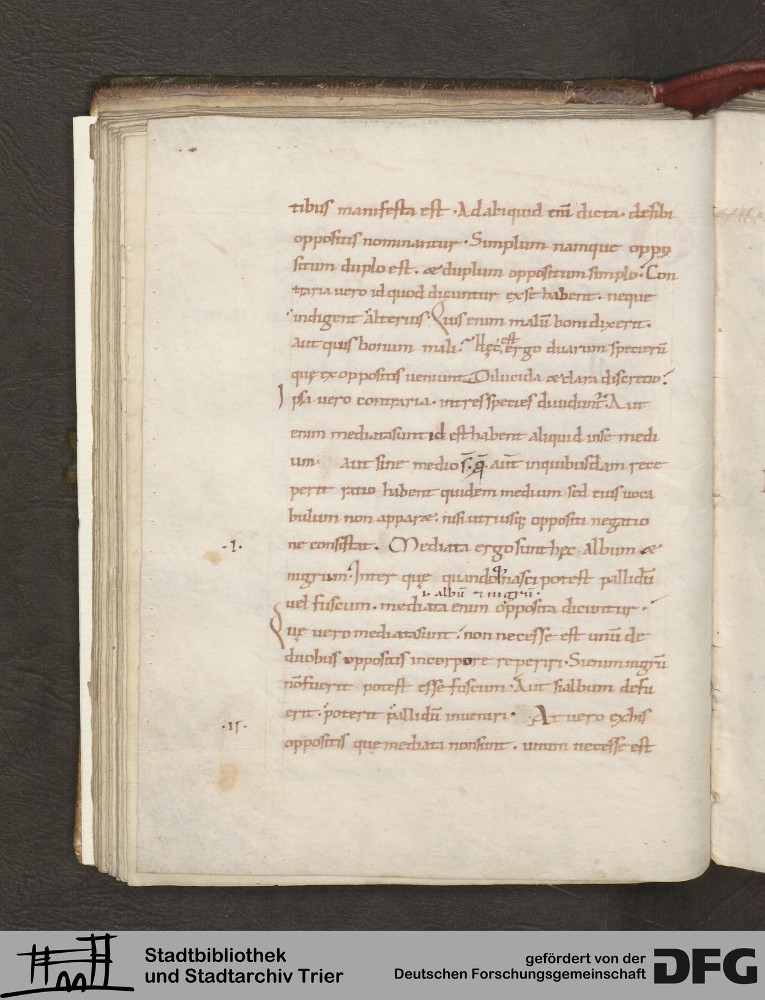 tibus manifesta est · Ad aliquid enī dicta · desibi
oppositis nominantur · Simplum namque oppo
situm duplo est . & duplum oppositum simplo · Con
traria vero id quod dicuntur exse habent · neque
indigent alterius · Quis enim malū boni dixerit .
aut quis bonum mali . Hęc est ergo duarum specierū
quę ex oppositis veniunt Dilucida & clara discretio .
Ipsa vero contraria · intres species dividunt᷑ · Aut
enim mediata sunt id est habent aliquid inse medi
um · aut sine medio s̄ · q̄ aut̄ inquibusdam rece
perit ratio habent quidem medium sed eius voca
bulum non appar& · nisi utriusq; oppositi negatio
ne consistat .
·I· Mediata ergo sunt hęc Album &
nigrum · Inter quę quando nasci potest pallidū
.i. albū & nigrū .
vel fuscum · mediata enim opposita dicuntur ·
Quę vero mediata sunt non necesse est unū de
duobus oppositis incorpore reperiri · Si enim nigrū
nō fuerit potest esse fuscum · Aut si album defu
erit · poterit pallidū inveniri ·
·II· At vero ex his
oppositis quę mediata non sunt · unum necesse est
Stadtbibliothek
und Stadtarchiv Trier
gefördert von der
Deutschen Forschungsgemeinschaft
DFG